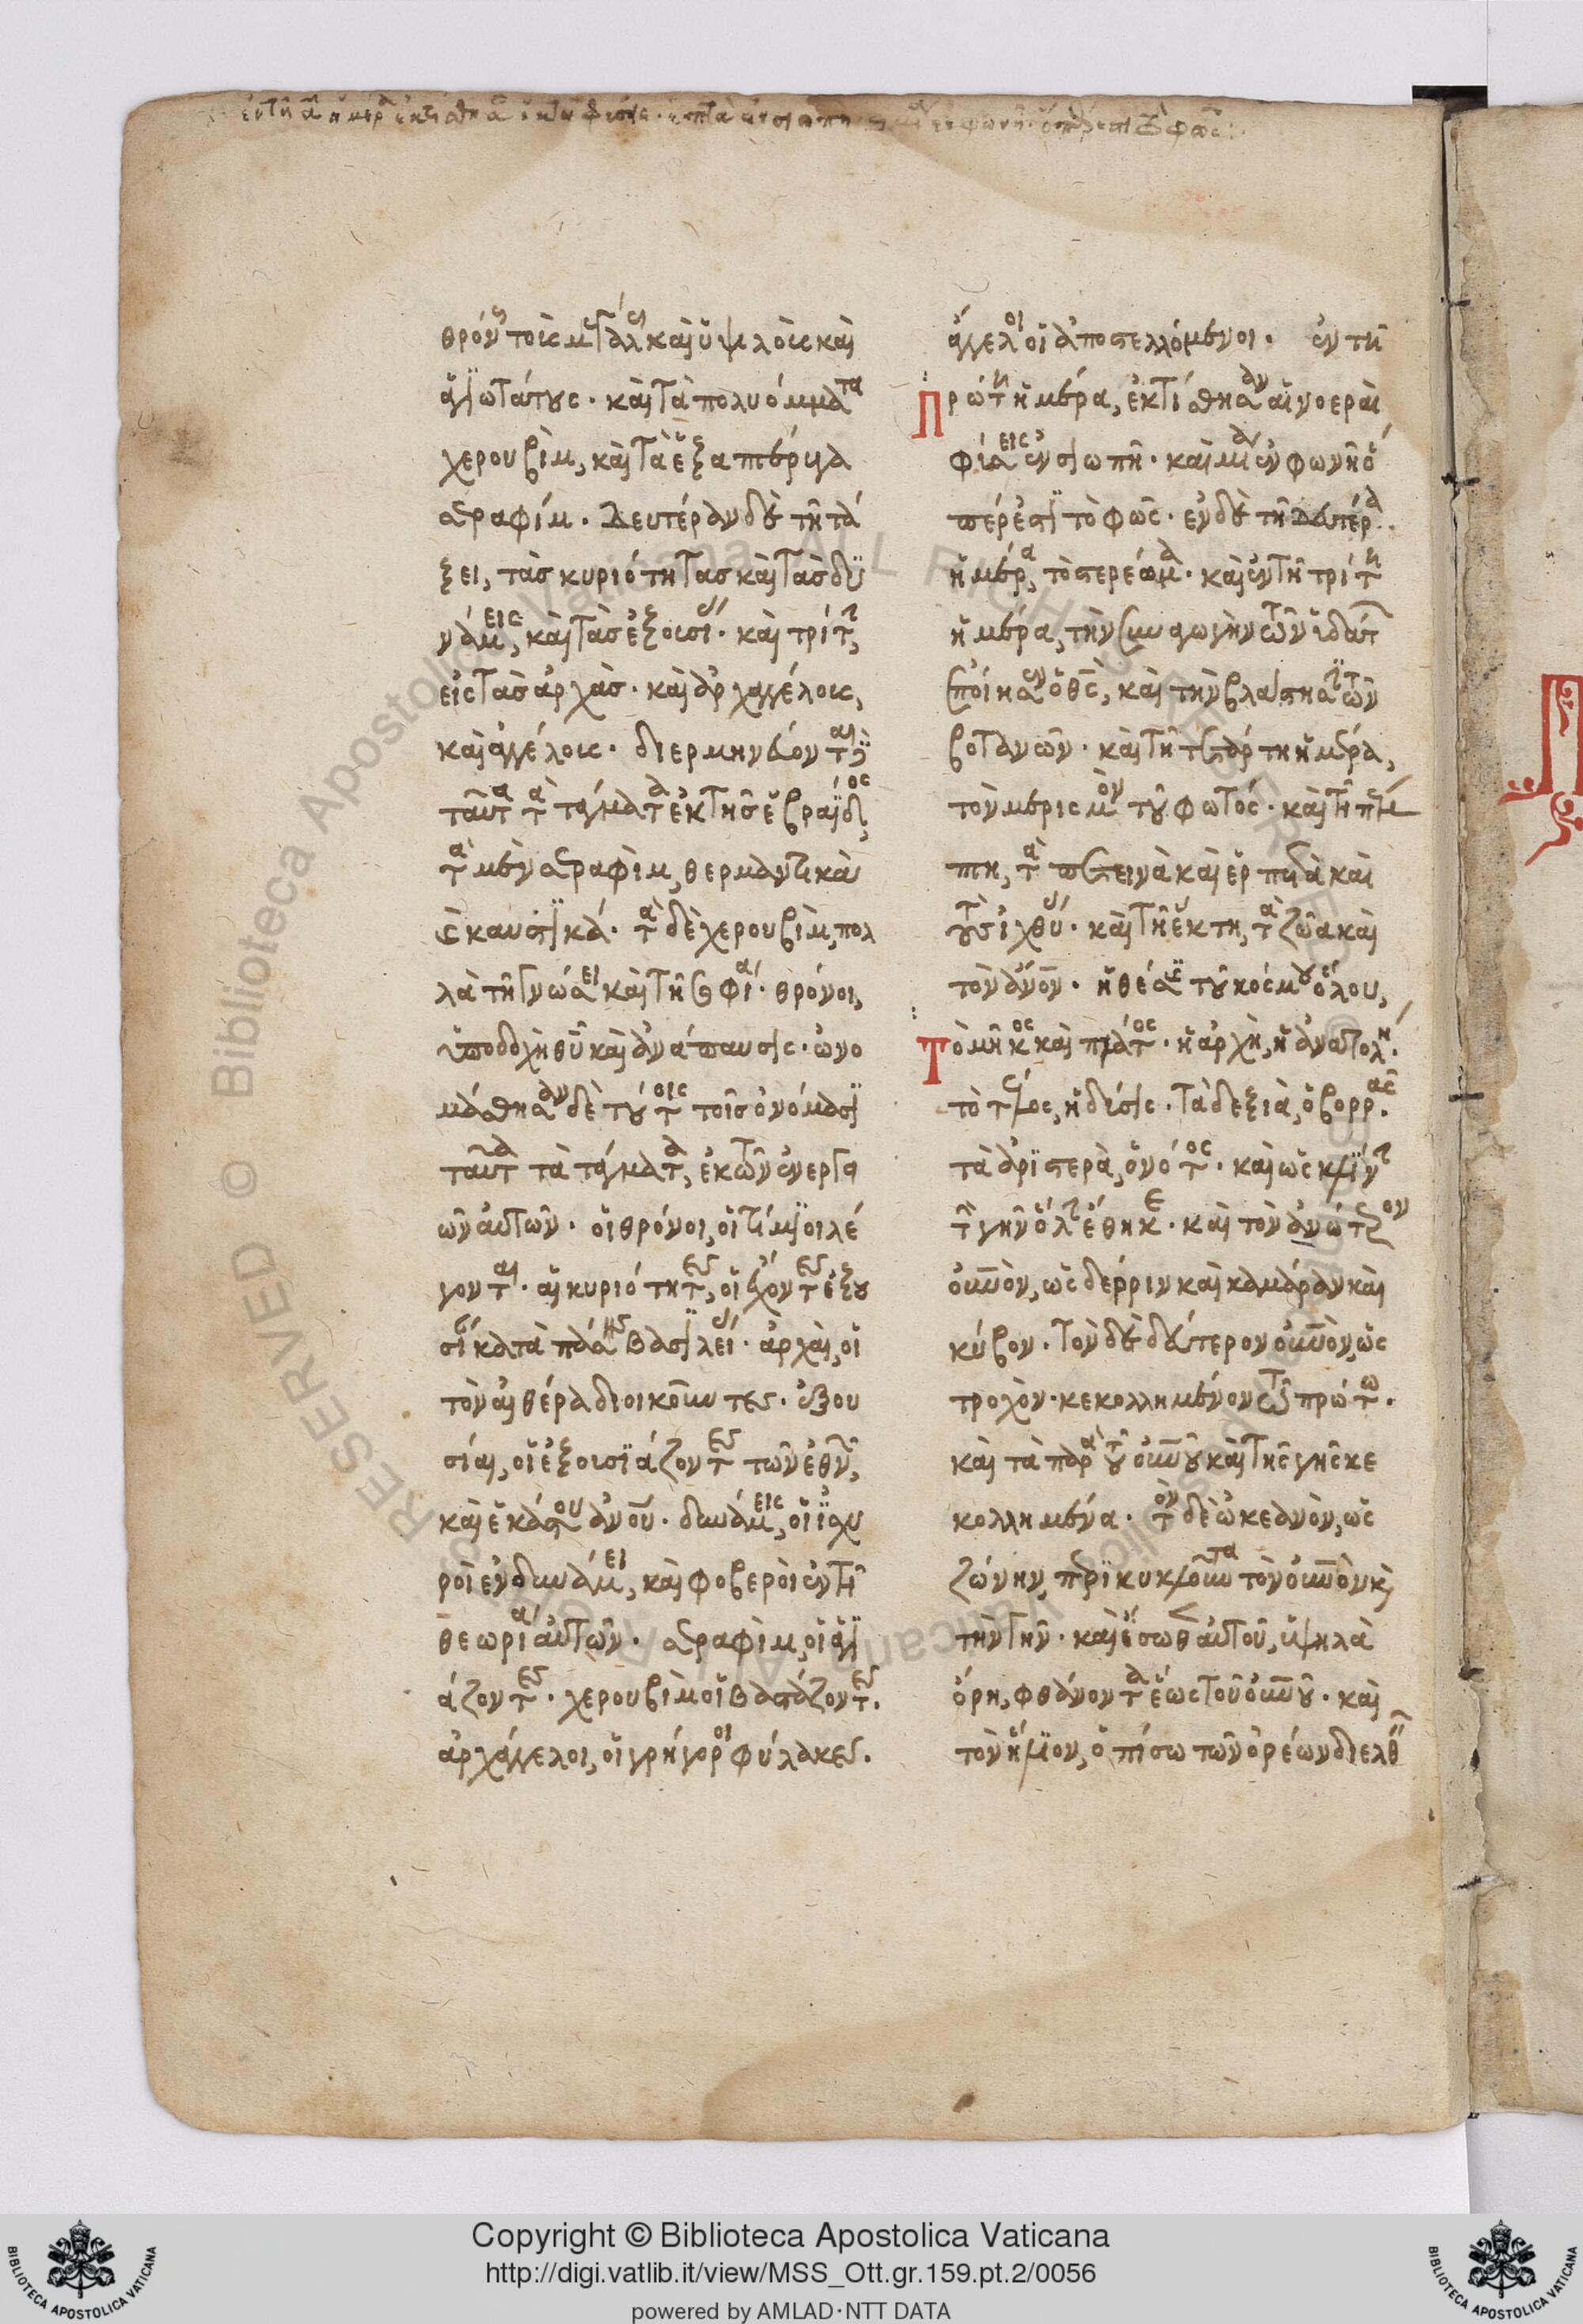 θρόν τοῖς μεγάλοις καὶ ὑψηλοῖς καὶ
ἁγιωτάτους· καὶ τὰ πολυόμματα
χερουβίμ, καὶ τὰ ἑξαπτέρυγα
σεραφίμ. Δευτέραν δὲ τῇ τά
ξει, τὰς κυριότητας καὶ τὰς δυ
νάμεις, καὶ τὰς ἐξουσίας· καὶ τρίτον,
εἰς τὰς ἀρχὰς· καὶ ἀρχαγγέλοις,
καὶ ἀγγέλοις· διερμηνεύονται δὲ
ταῦτα τὰ τάγματα ἐκ τῆς ἑβραΐδος,
τὰ μὲν σεραφὶμ, θερμαντικὰ
ἢ καυστικά· τὰ δὲ χερουβὶμ, πολ
λὰ τῇ γνώσει καὶ τῇ σοφίᾳ· θρόνοι,
ὑποδοχὴ θυ καὶ ἀνάπαυσις· ὠνο
μάσθησαν δὲ τούτοις τοῖς ὀνόμασι
ταῦτα τὰ τάγματα, ἐκ τῶν ἐνεργει
ῶν αὐτῶν· οἱ θρόνοι, οἱ τίμιοι λέ
γονται· αἱ κυριότητες, οἱ ἔχοντες ἐξου
σίαν κατὰ πάσης βασιλείας· ἀρχαὶ, οἱ
τὸν αἰθέρα διοικοῦντες· ἐξου
σίαι, οἱ ἐξουσιάζοντες τῶν ἐθνῶν,
καὶ ἑκάστου ἀνου· δυνάμεις, οἱ ἰσχυ
ροὶ ἐν δυνάμει, καὶ φοβεροὶ ἐν τῇ
θεωρίᾳ αὐτῶν· σεραφὶμ, οἱ ἁγι
άζοντες· χερουβὶμ οἱ βαστάζοντες.
ἀρχάγγελοι, οἱ γρήγοροι φύλακες.
ἄγγελοι οἱ ἀποστελλόμενοι· ἐν τῇ
Πρώτη ἡμέρα, ἐκτίσθησαν αἱ νοεραὶ
φύσεις ἐν σιωπῇ· καὶ μία ἐν φωνῇ ὅ
περ ἐστὶ τὸ φῶς· ἐν δὲ τῇ δευτέρα
ἡμέρα, τὸ στερέωμα· καὶ ἐν τῇ τρίτη
ἡμέρα, τὴν συναγωγὴν τῶν ὑδάτων
ἐποίησεν ὁ θς, καὶ τὴν βλάστησιν τῶν
βοτανῶν· καὶ τῇ τετάρτη ἡμέρα,
τὸν μερισμὸν τοῦ φωτός· καὶ τῇ πέμ
πτη, τὰ πετεινὰ καὶ ἑρπετὰ καὶ
τοὺς ἰχθύας· καὶ τῇ ἕκτη, τὰ ζῶα καὶ
τὸν ἀνον· ἡ θέσις τοῦ κόσμου ὅλου,
Τὸ μῆκος καὶ πλάτος· ἡ ἀρχὴ, ἡ ἀνατολή·
τὸ τέλος, ἡ δύσις· τὰ δεξιὰ, ὁ βορρᾶς.
τὰ ἀριστερὰ, ὁ νότος· καὶ ὡς κλίνην
τὴν γῆν ὅλην ἔθηκε· καὶ τὸν ἀνώτερον
οὐνὸν, ὡς δέρριν καὶ καμάραν καὶ
κύβον· τὸν δὲ δεύτερον οὐνὸν, ὡς
τροχὸν· κεκολλημένον τῶ πρώτω·
καὶ τὰ πέρατα τοῦ οὐνοῦ καὶ τῆς γῆς κε
κολλημένα· τὸν δὲ ὠκεανὸν, ὡς
ζώνην περικυκλοῦντα τὸν οὐνὸν κ
τὴν γῆν· καὶ ἔσωθεν αὐτοῦ, ὑψηλὰ
ὄρη, φθάνοντα ἕως τοῦ οὐνοῦ· καὶ
τὸν ἥλιον, ὀπίσω τῶν ὀρέων διελθεῖν
Copyright © Biblioteca Apostolica Vaticana
http://digi.vatlib.it/view/MSS_Ott.gr.159.pt.2/0056
powered by AMLAD·NTT DATA